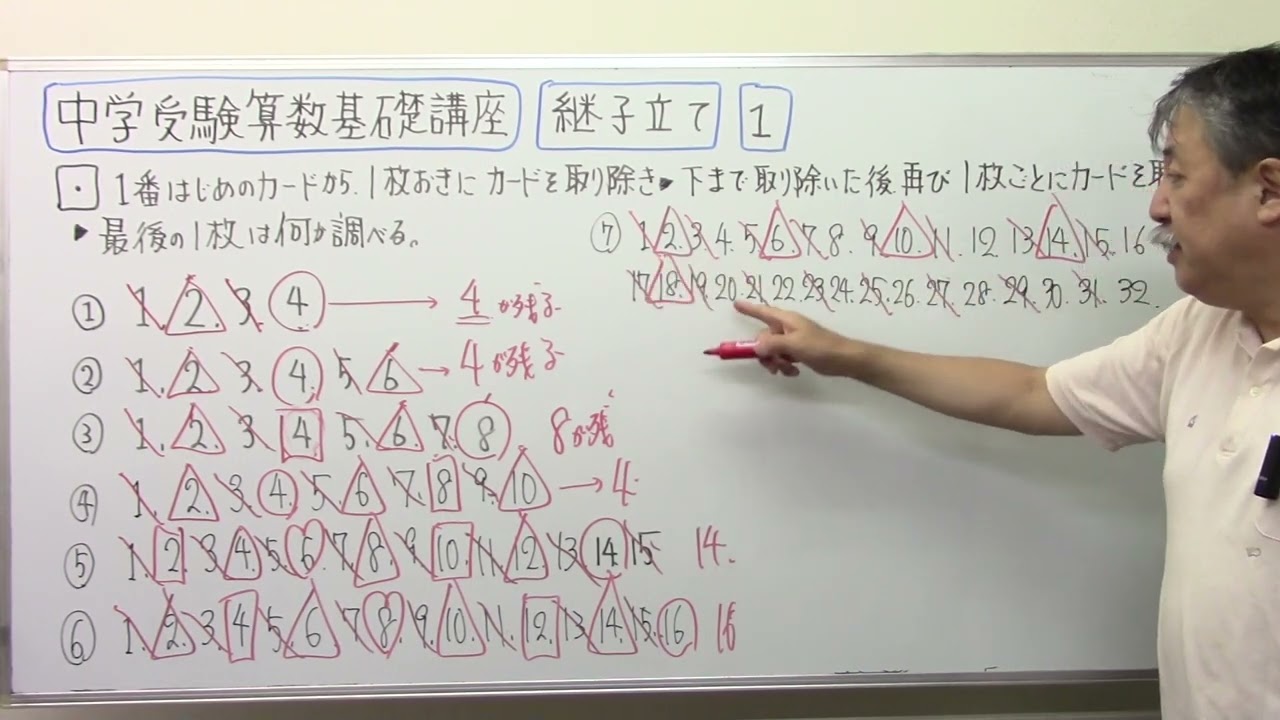 中学受験算数基礎講座 継子立て 1
・ 1番はじめのカードから、1枚おきにカードを取り除き▶下まで取り除いた後再び1枚ごとにカードを取
▶最後の1枚は何か調べる。
① 1. 2. 3. 4 → 4が残る
② 1. 2. 3. 4. 5. 6 → 4が残る
③ 1. 2. 3. 4. 5. 6. 7. 8 8が残
④ 1. 2. 3. 4. 5. 6. 7. 8. 9. 10 → 4.
⑤ 1. 2. 3. 4. 5. 6. 7. 8. 9. 10. 11. 12. 13. 14. 15. 14.
⑥ 1. 2. 3. 4. 5. 6. 7. 8. 9. 10. 11. 12. 13. 14. 15. 16 16
⑦ 1. 2. 3. 4. 5. 6. 7. 8. 9. 10. 11. 12. 13. 14. 15. 16
17. 18. 19. 20. 21. 22. 23. 24. 25. 26. 27. 28. 29. 30. 31. 32.